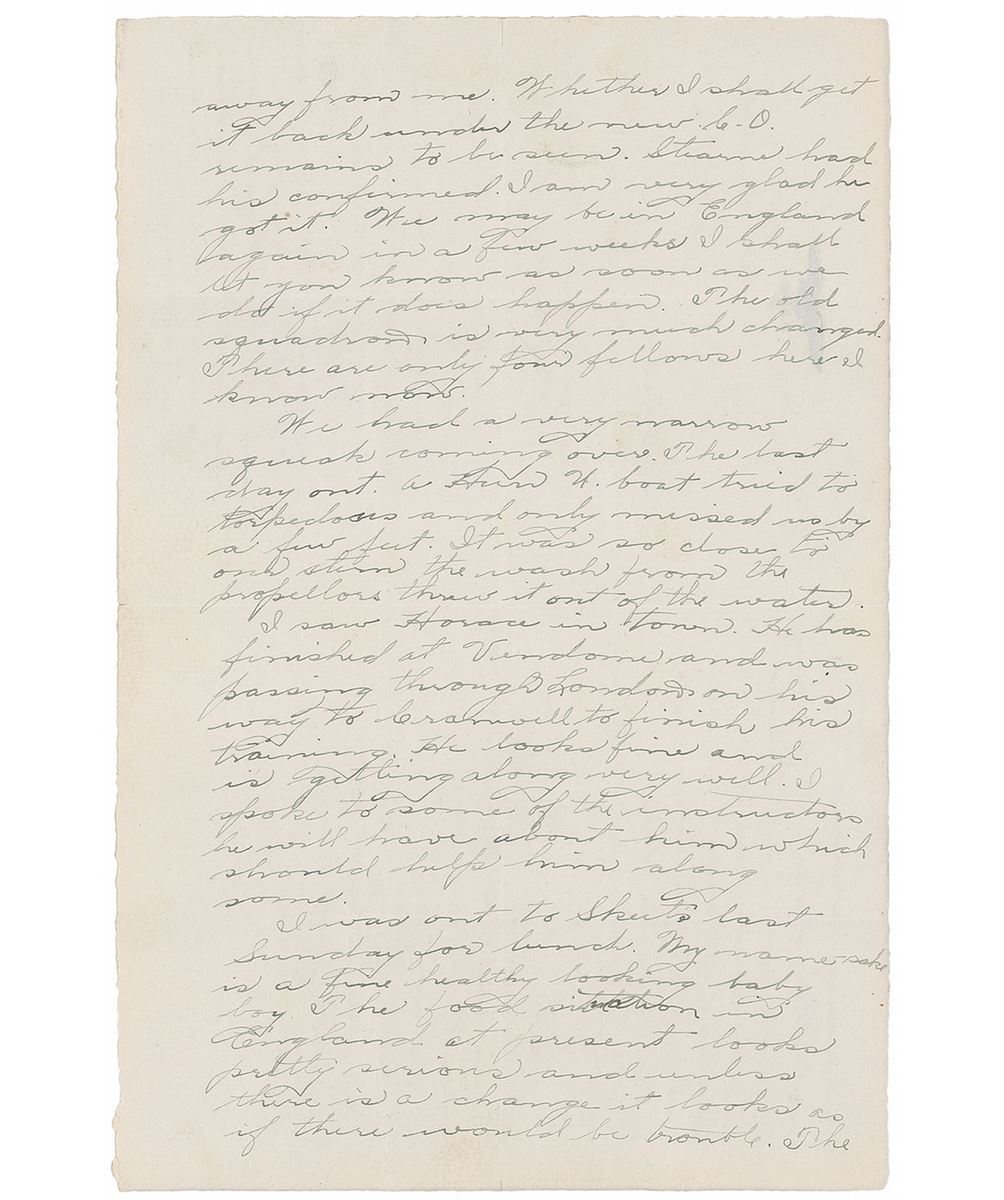 away from me. Whether I shall get
it back under the new C.O.
remains to be seen. Stearne had
his confirmed. I am very glad he
got it. We may be in England
again in a few weeks I shall
let you know as soon as we
do if it does happen. The old
squadron is very much changed.
There are only four fellows here I
know now.
We had a very narrow
squeak coming over. The last
day out. a Hun U. boat tried to
torpedo us and only missed us by
a few feet. It was so close to
our stern the wash from the
propellors threw it out of the water.
I saw Horace in town. He has
finished at Vendome and was
passing through London on his
way to Cranwell to finish his
training. He looks fine and
is getting along very well. I
spoke to some of the instructors
he will have about him which
should help him along
some.
I was out to Skeet's last
Sunday for lunch. My name sake
is a fine healthy looking baby
boy. The food situation in
England at present looks
pretty serious and unless
there is a change it looks as
if there would be trouble. The